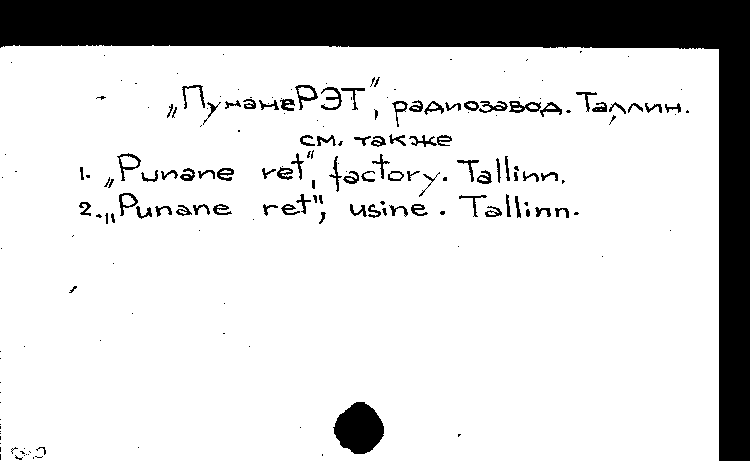 „ПунанеРЭТ", радиозавод. Таллин.
см. также
1. „Punane ret", factory. Tallinn.
2. „Punane ret", usine. Tallinn.